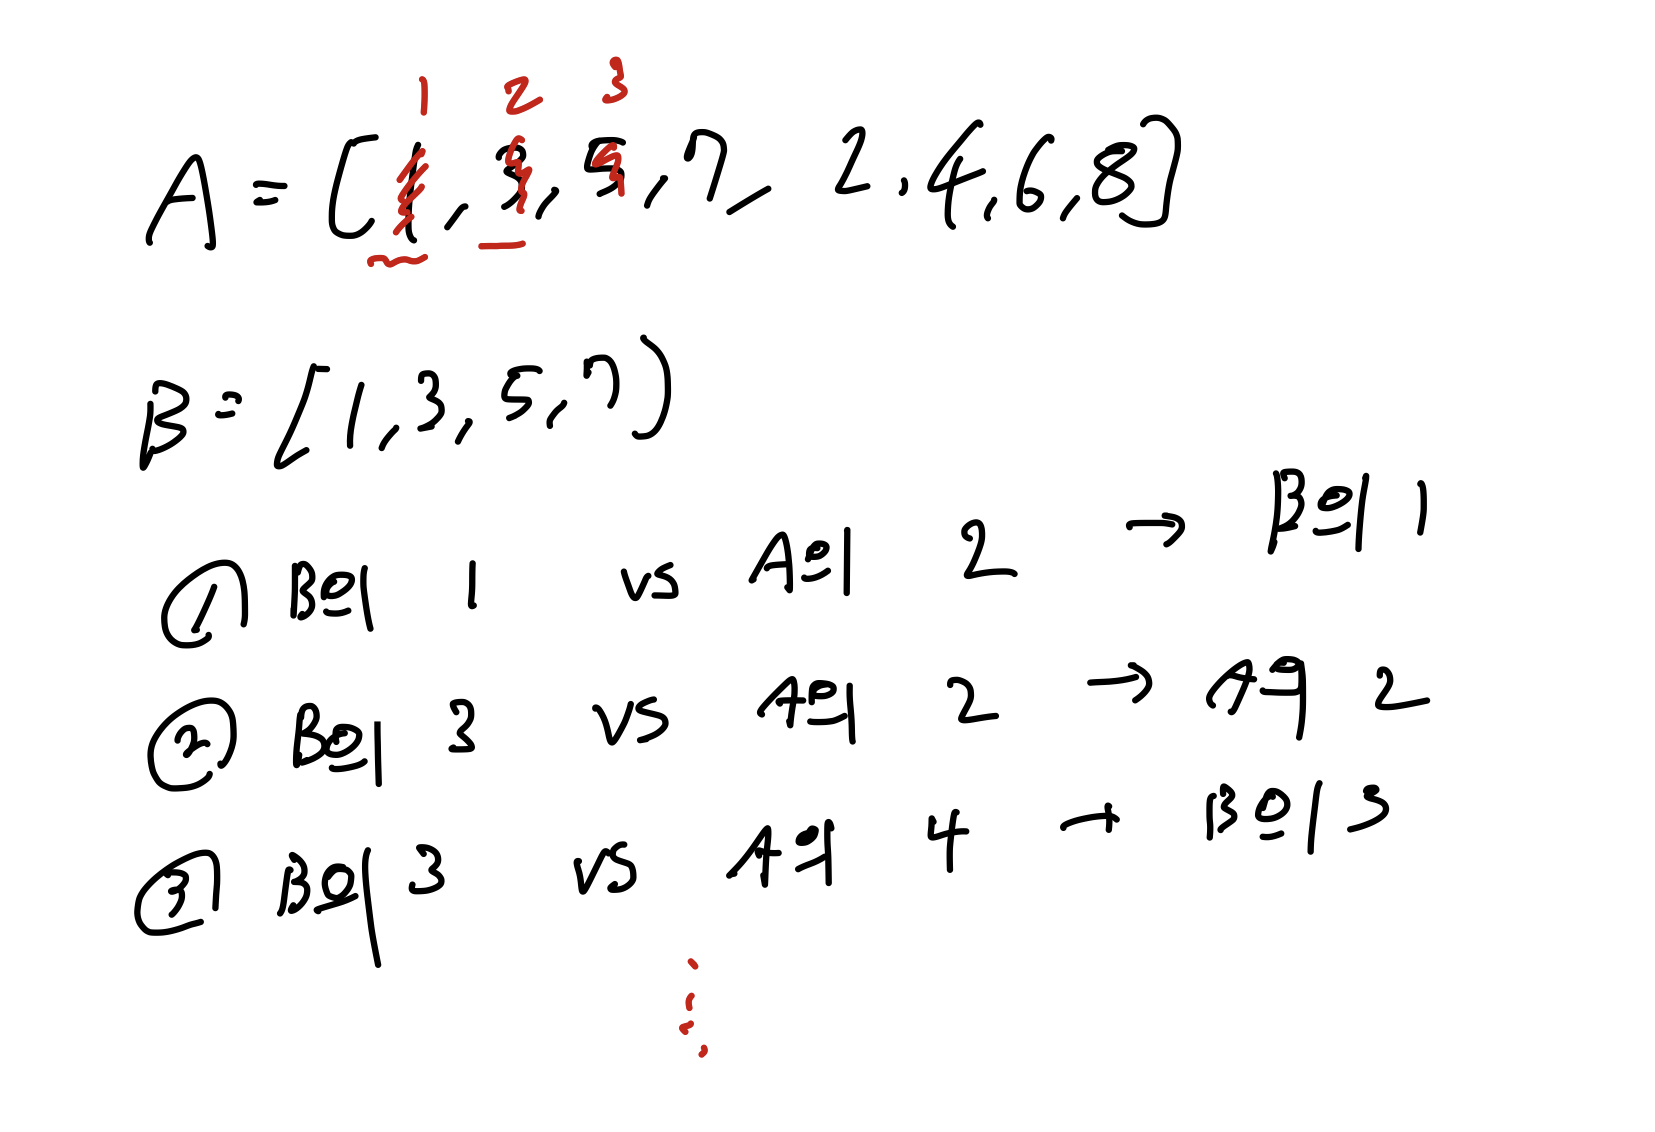 1 2 3
A = [1, 3, 5, 7, 2, 4, 6, 8]
B = [1, 3, 5, 7)
① B의 1 vs A의 2 → B의 1
② B의 3 vs A의 2 → A의 2
③ B의 3 vs A의 4 → B의 3